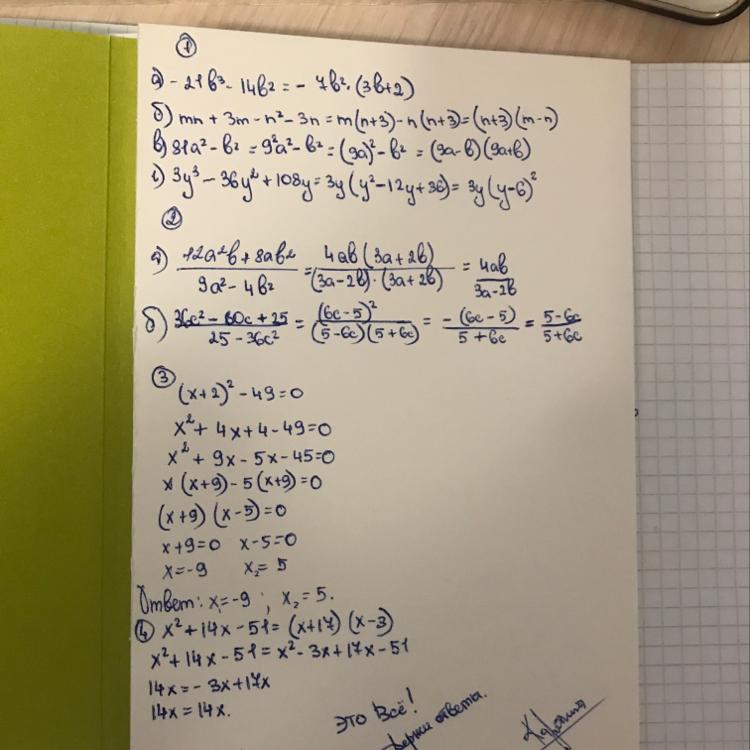 ①
а) - 21b³ - 14b² = - 7b² · (3b+2)
б) mn + 3m - n² - 3n = m(n+3) - n(n+3) = (n+3)(m-n)
в) 81a² - b² = 9²a² - b² = (9a)² - b² = (9a-b)(9a+b)
г) 3y³ - 36y² + 108y = 3y(y² - 12y + 36) = 3y(y-6)²
②
а) (12a²b + 8ab²)/(9a² - 4b²) = (4ab(3a+2b))/((3a-2b)·(3a+2b)) = 4ab/(3a-2b)
б) (36c² - 60c + 25)/(25 - 36c²) = (6c-5)²/((5-6c)(5+6c)) = (-(6c-5))/(5+6c) = (5-6c)/(5+6c)
③
(x+2)² - 49 = 0
x² + 4x + 4 - 49 = 0
x² + 9x - 5x - 45 = 0
x (x+9) - 5 (x+9) = 0
(x+9) (x-5) = 0
x+9=0 x-5=0
x=-9 x₂=5
Ответ: x₁=-9 ; x₂=5.
④ x² + 14x - 51 = (x+17) (x-3)
x² + 14x - 51 = x² - 3x + 17x - 51
14x = - 3x + 17x
14x = 14x.
это всё!
Держи ответы.